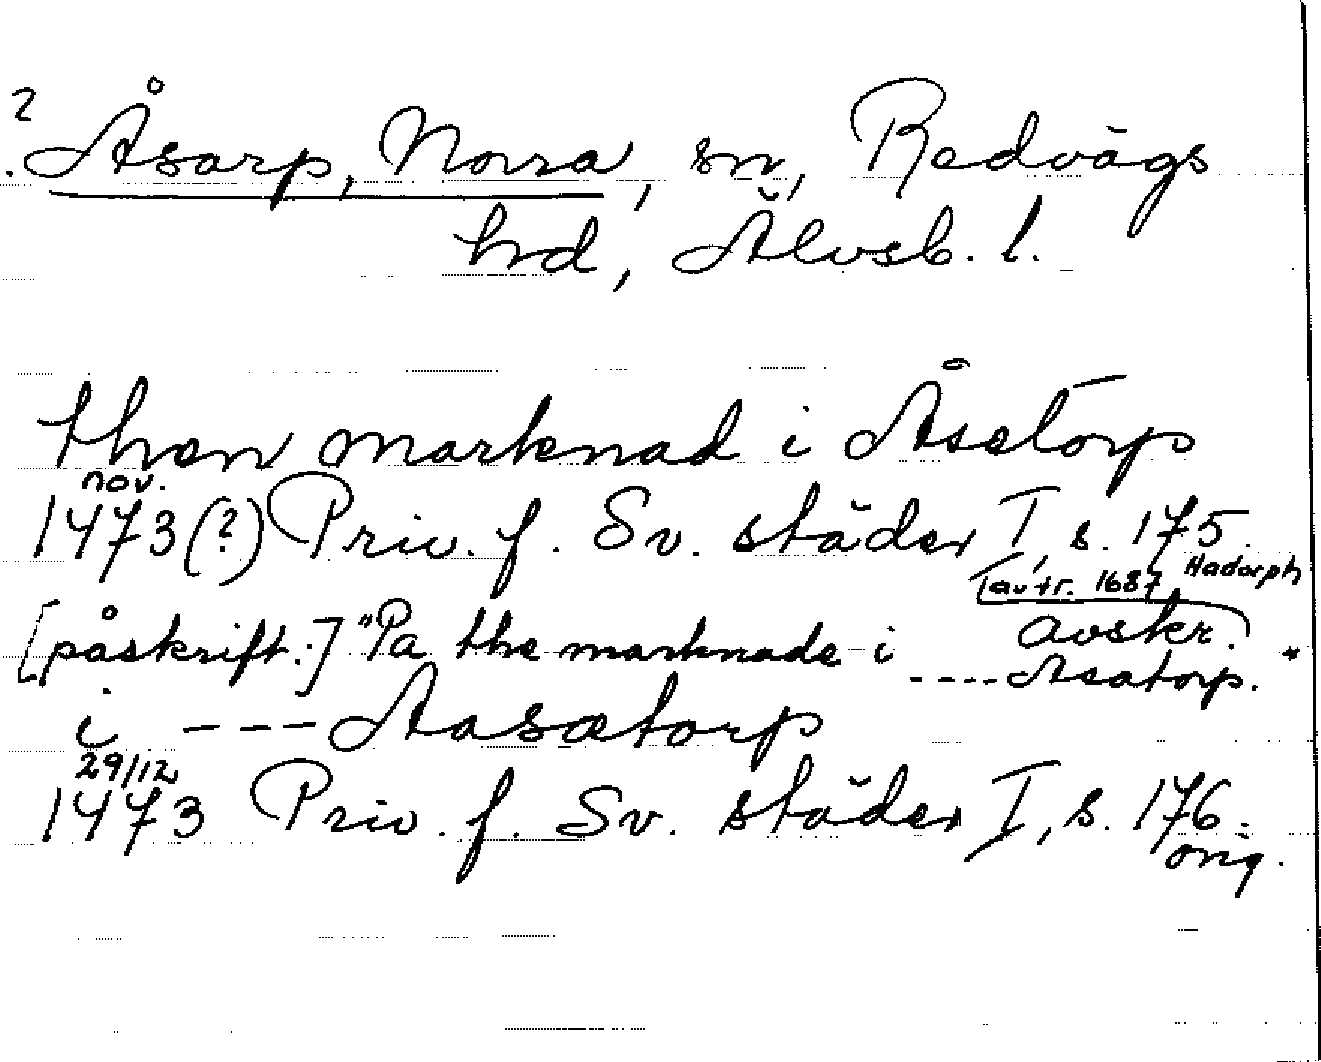 2
Åsarp, Norra, sn, Redvägs
hrd, Älvsb. l.
then marknad i Åsetorp
nov.
1473(?) Priv. f. Sv. städer I, s. 175.
avtr. 1687 Hadorph
avskr.
[påskrift:] "Pa the marknade i ---- Asatorp."
i --- Aasætorp
29/12
1473 Priv. f. Sv. städer I, s. 176.
orig.